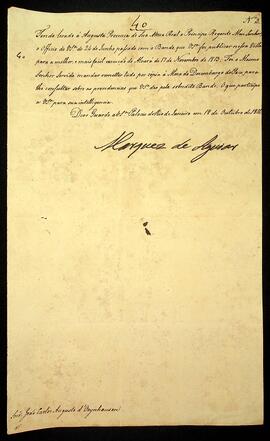 40
Nº 2.
4.
Tendo levado á Augusta Presença de Sua Alteza Real o Principe Regente Meu Senhor
o Officio de VSª de 24 de Junho passado com o Bando que VSª fez publicar nessa Villa
para a melhor, e mais facil execução do Alvará de 17 de Novembro de 1813: Foi o Mesmo
Senhor Servido mandar remetter tudo por copia á Mesa do Desembargo do Paço para
lhe consultar sobre as providencias que VSª deo pelo sobredito Bando. O que participo
a VSª para sua intelligencia.
Deos Guarde a VSª Palacio do Rio de Janeiro em 18 de Outubro de
Marquez de Aguiar
Snr. João Carlos Augusto d'Oeynhausen